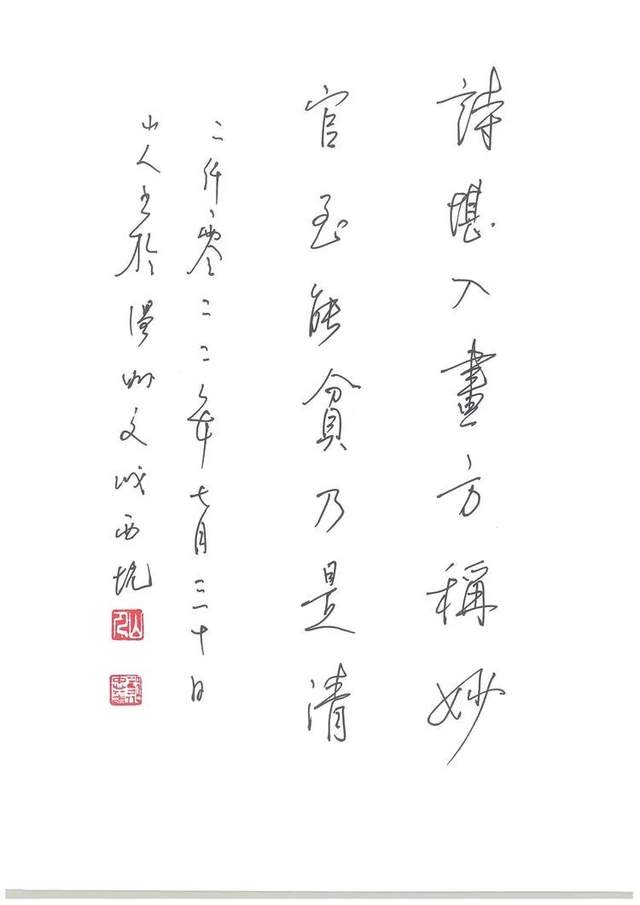 詩堪入畫方稱妙
官至能貧乃是清
二仟零二二年七月三十日
山人書於溫州文成西坑
山人